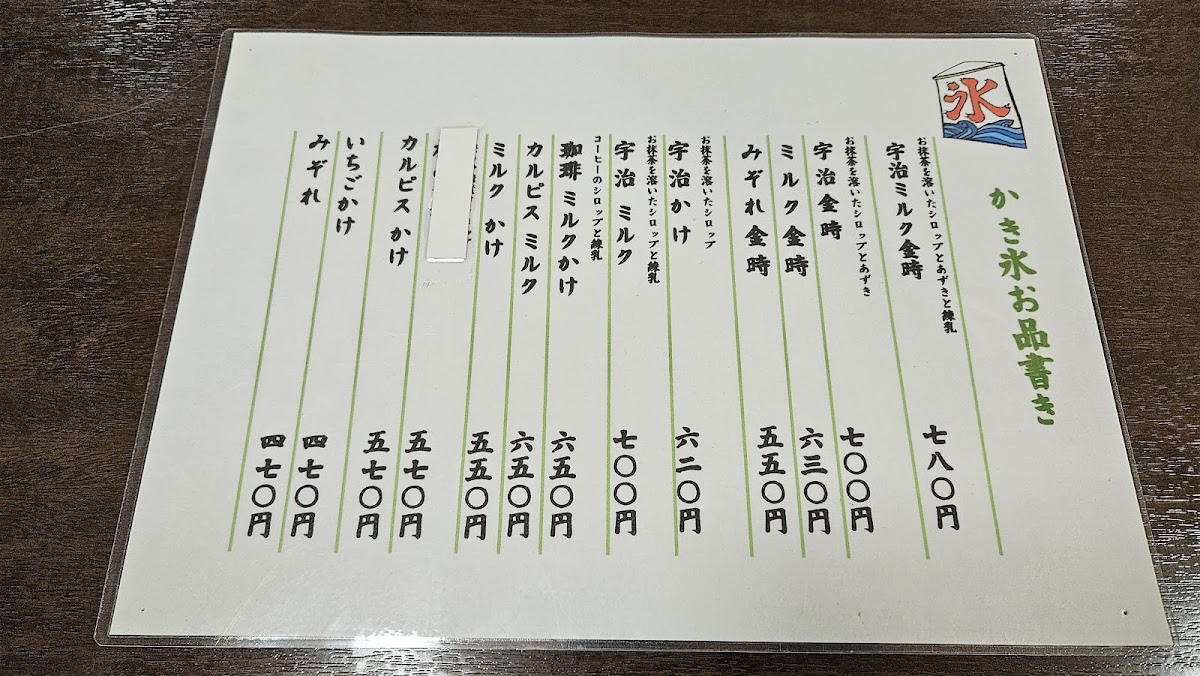 氷
かき氷お品書き
お抹茶を溶いたシロップとあずきと練乳
宇治ミルク金時 七八〇円
お抹茶を溶いたシロップとあずき
宇治金時 七〇〇円
ミルク金時 六三〇円
みぞれ金時 五五〇円
お抹茶を溶いたシロップ
宇治かけ 六二〇円
お抹茶を溶いたシロップと練乳
宇治 ミルク 七〇〇円
コーヒーのシロップと練乳
珈琲 ミルクかけ 六五〇円
カルピス ミルク 六五〇円
ミルク かけ 五五〇円
五七〇円
カルピス かけ 五七〇円
いちごかけ 四七〇円
みぞれ 四七〇円